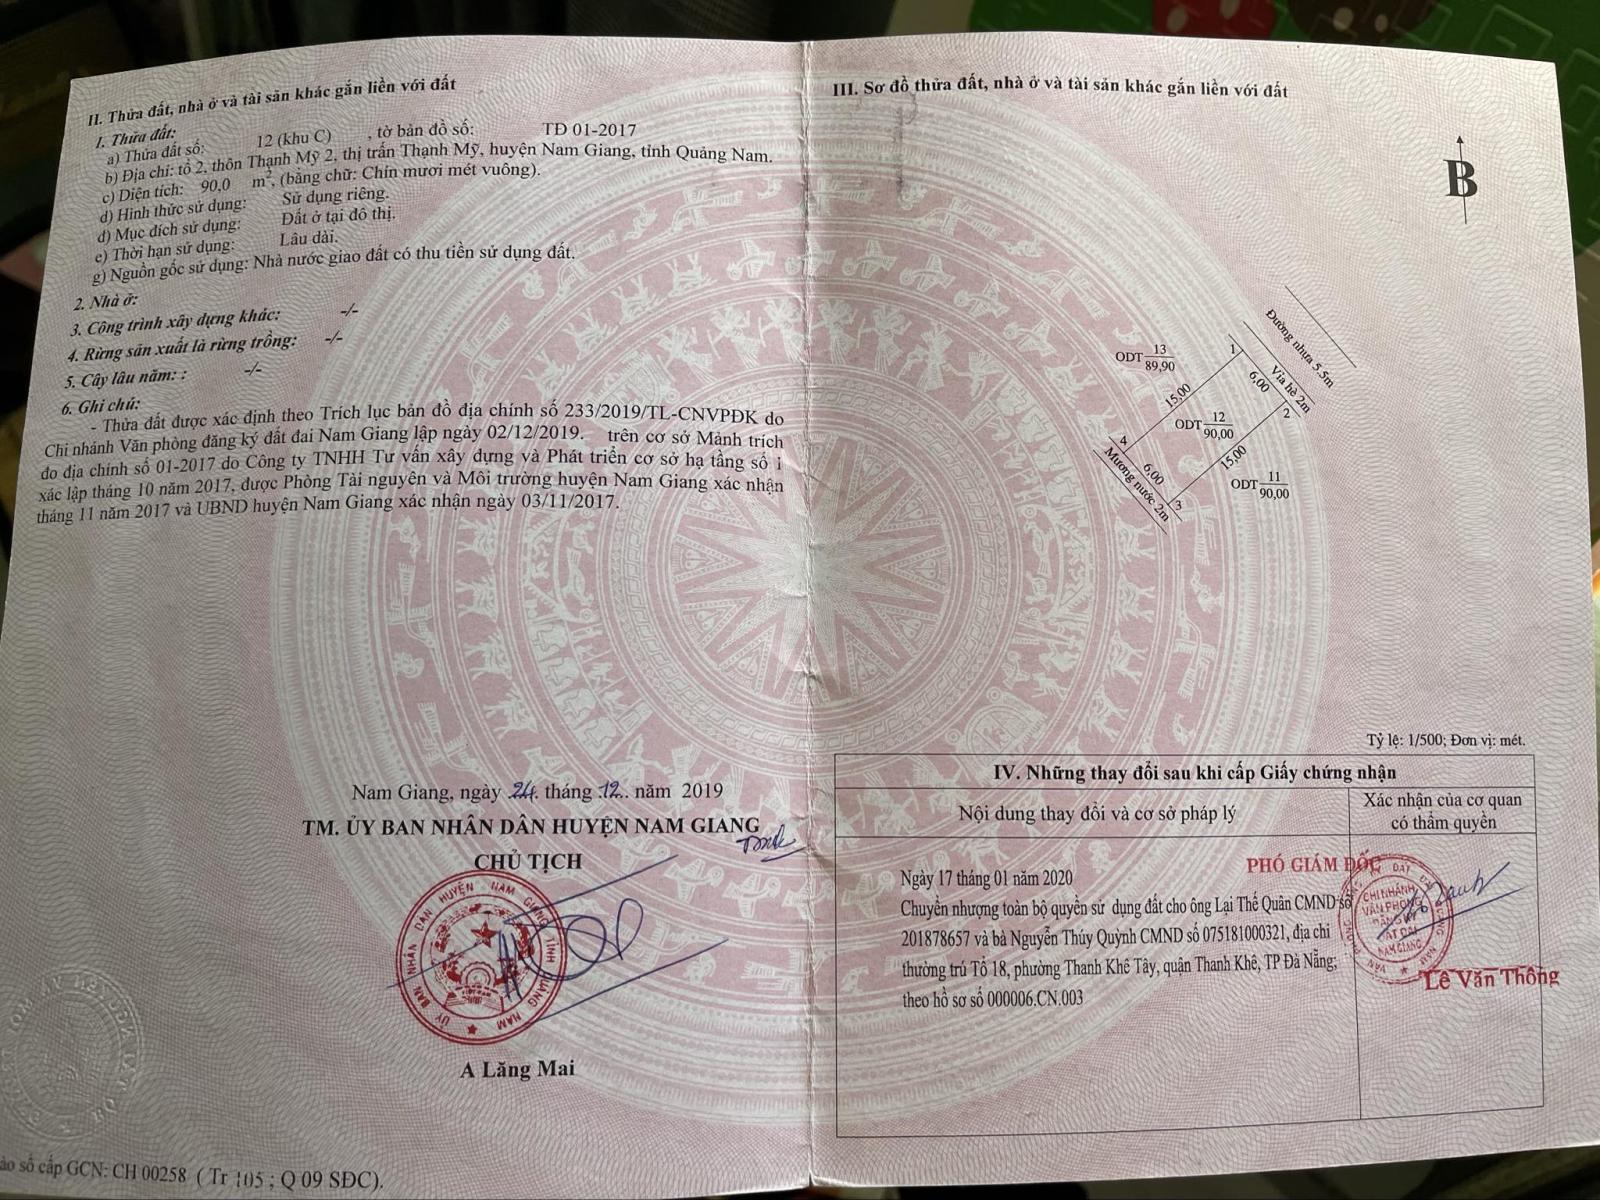 II. Thửa đất, nhà ở và tài sản khác gắn liền với đất
1. Thửa đất:
a) Thửa đất số: 12 (khu C) , tờ bản đồ số: TĐ 01-2017
b) Địa chỉ: tổ 2, thôn Thạnh Mỹ 2, thị trấn Thạnh Mỹ, huyện Nam Giang, tỉnh Quảng Nam.
c) Diện tích: 90,0 m², (bằng chữ: Chín mươi mét vuông).
d) Hình thức sử dụng: Sử dụng riêng.
đ) Mục đích sử dụng: Đất ở tại đô thị.
e) Thời hạn sử dụng: Lâu dài.
g) Nguồn gốc sử dụng: Nhà nước giao đất có thu tiền sử dụng đất.
2. Nhà ở:
3. Công trình xây dựng khác: -/-
4. Rừng sản xuất là rừng trồng: -/-
5. Cây lâu năm: : -/-
6. Ghi chú:
- Thửa đất được xác định theo Trích lục bản đồ địa chính số 233/2019/TL-CNVPĐK do
Chi nhánh Văn phòng đăng ký đất đai Nam Giang lập ngày 02/12/2019. trên cơ sở Mảnh trích
đo địa chính số 01-2017 do Công ty TNHH Tư vấn xây dựng và Phát triển cơ sở hạ tầng số 1
xác lập tháng 10 năm 2017, được Phòng Tài nguyên và Môi trường huyện Nam Giang xác nhận
tháng 11 năm 2017 và UBND huyện Nam Giang xác nhận ngày 03/11/2017.
Nam Giang, ngày 24. tháng .12.. năm 2019
TM. ỦY BAN NHÂN DÂN HUYỆN NAM GIANG
CHỦ TỊCH
ỦY BAN NHÂN DÂN HUYỆN NAM GIANG TỈNH QUẢNG NAM
A Lăng Mai
ào sổ cấp GCN: CH 00258 ( Tr 105 ; Q 09 SĐC).
III. Sơ đồ thửa đất, nhà ở và tài sản khác gắn liền với đất
B
Đường nhựa 5.5m
Vỉa hè 2m
ODT 13
89,90
1
6,00
2
15,00
ODT 12
90,00
4
15,00
6,00
3
Mương nước 2m
ODT 11
90,00
Tỷ lệ: 1/500; Đơn vị: mét.
IV. Những thay đổi sau khi cấp Giấy chứng nhận
Nội dung thay đổi và cơ sở pháp lý
Xác nhận của cơ quan
có thẩm quyền
Ngày 17 tháng 01 năm 2020
Chuyển nhượng toàn bộ quyền sử dụng đất cho ông Lại Thế Quân CMND số
201878657 và bà Nguyễn Thúy Quỳnh CMND số 075181000321, địa chỉ
thường trú Tổ 18, phường Thanh Khê Tây, quận Thanh Khê, TP Đà Nẵng;
theo hồ sơ số 000006.CN.003
PHÓ GIÁM ĐỐC
CHI NHÁNH
VĂN PHÒNG
ĐĂNG KÝ
ĐẤT ĐAI
NAM GIANG
Lê Văn Thông